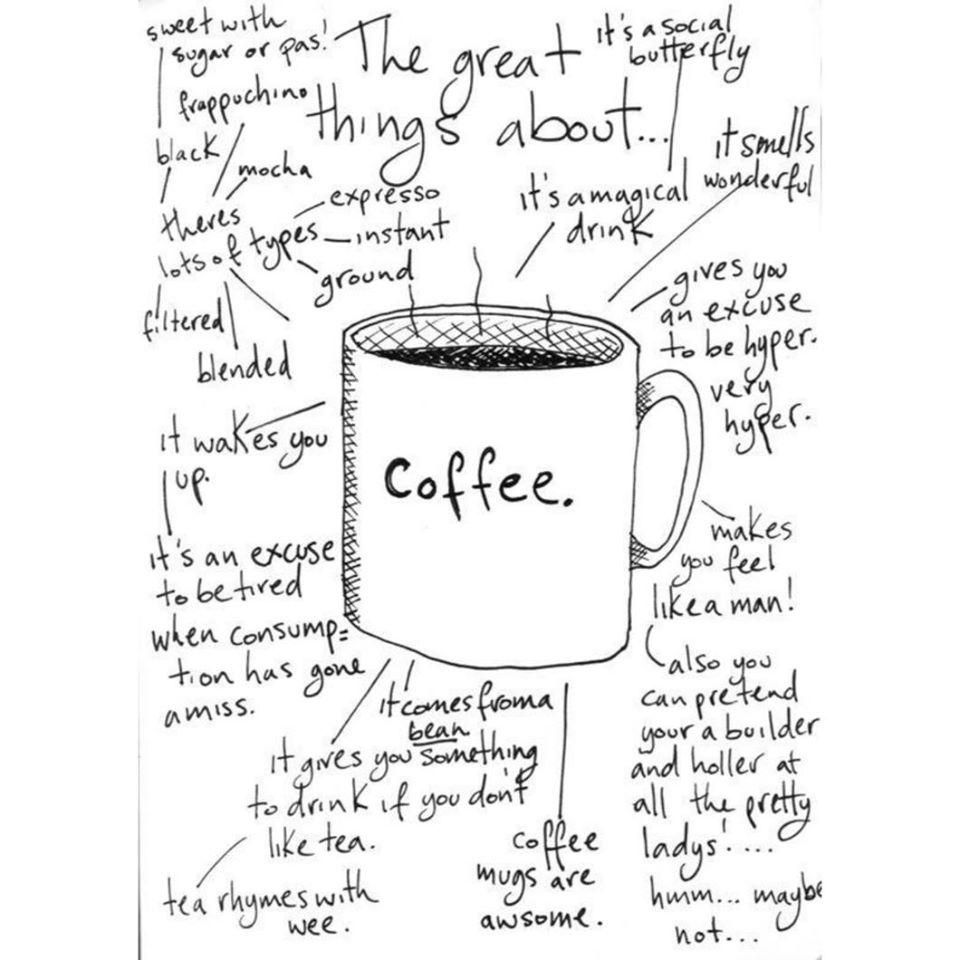 The great
things about...
sweet with
sugar or pas!
frappuchino
black
mocha
theres
lots of types
expresso
instant
ground
filtered
blended
it's a social
butterfly
it's a magical
drink
it smells
wonderful
gives you
an excuse
to be hyper.
very
hyper.
Coffee.
it wakes you
up.
it's an excuse
to be tired
when consump=
tion has gone
amiss.
makes
you feel
like a man!
also you
can pretend
your a builder
and holler at
all the pretty
ladys'....
hmm... maybe
not...
it comes from a
bean
it gives you something
to drink if you don't
like tea.
tea rhymes with
wee.
coffee
mugs are
awsome.